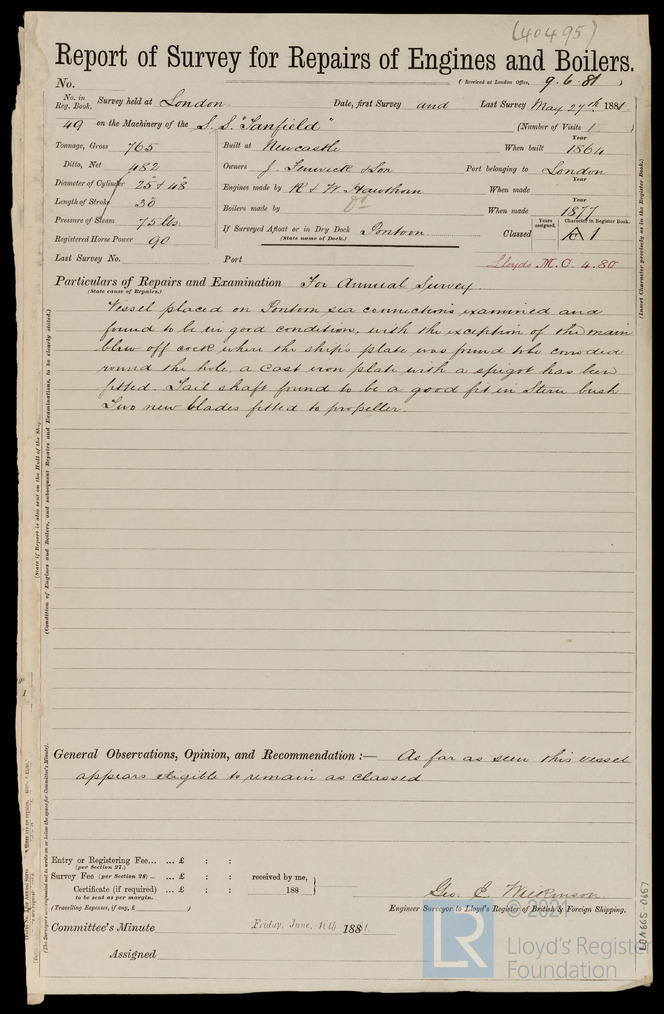 (40495)
Report of Survey for Repairs of Engines and Boilers.
No. (Received at London Office, 9.6.81)
No. in Reg. Book. Survey held at London Date, first Survey and Last Survey May 27th 1881
49 on the Machinery of the S.S. "Tanfield" (Number of Visits 1)
Tonnage, Gross 765 Built at Newcastle When built Year 1864
Ditto, Net 482 Owners J. Fenwick & Son Port belonging to London
Diameter of Cylinder 25" + 48" Engines made by R & W Hawthorn When made Year
Length of Stroke 30 Boilers made by Do When made Year 1877
Pressure of Steam 75 lbs. If Surveyed Afloat or in Dry Dock Pontoon Classed Years assigned. Character in Register Book. A 1
Registered Horse Power 90 (State name of Dock.)
Last Survey No. Port Lloyds M.C. 4.80
Particulars of Repairs and Examination For Annual Survey
(State cause of Repairs.)
Vessel placed on Pontoon sea connections examined and
found to be in good condition, with the exception of the main
blow off cock where the ship's plate was found to be corroded
round the hole, a cast iron plate with a spigot has been
fitted. Tail shaft found to be a good fit in Stern bush
Two new blades fitted to propeller.
(State if Report is also sent on the Hull of the Ship.
(Condition of Engines and Boilers, and subsequent Repairs and Examinations, to be clearly stated.)
(Insert Character precisely as in the Register Book.)
General Observations, Opinion, and Recommendation :— As far as seen this vessel
appears eligible to remain as classed
(The Surveyors are requested not to write on or below the space for Committee's Minute).
Entry or Registering Fee... ... £ : :
(per Section 27.)
Survey Fee (per Section 28) ... ... £ : : received by me,
Certificate (if required) ... £ : : 188
to be sent as per margin.
(Travelling Expenses, if any, £ )
Geo. E. Wilkinson
Engineer Surveyor to Lloyd's Register of British & Foreign Shipping.
Committee's Minute Friday, June, 10th 1881.
Assigned
LON665-0667
© 2021
LR
Lloyd's Register
Foundation